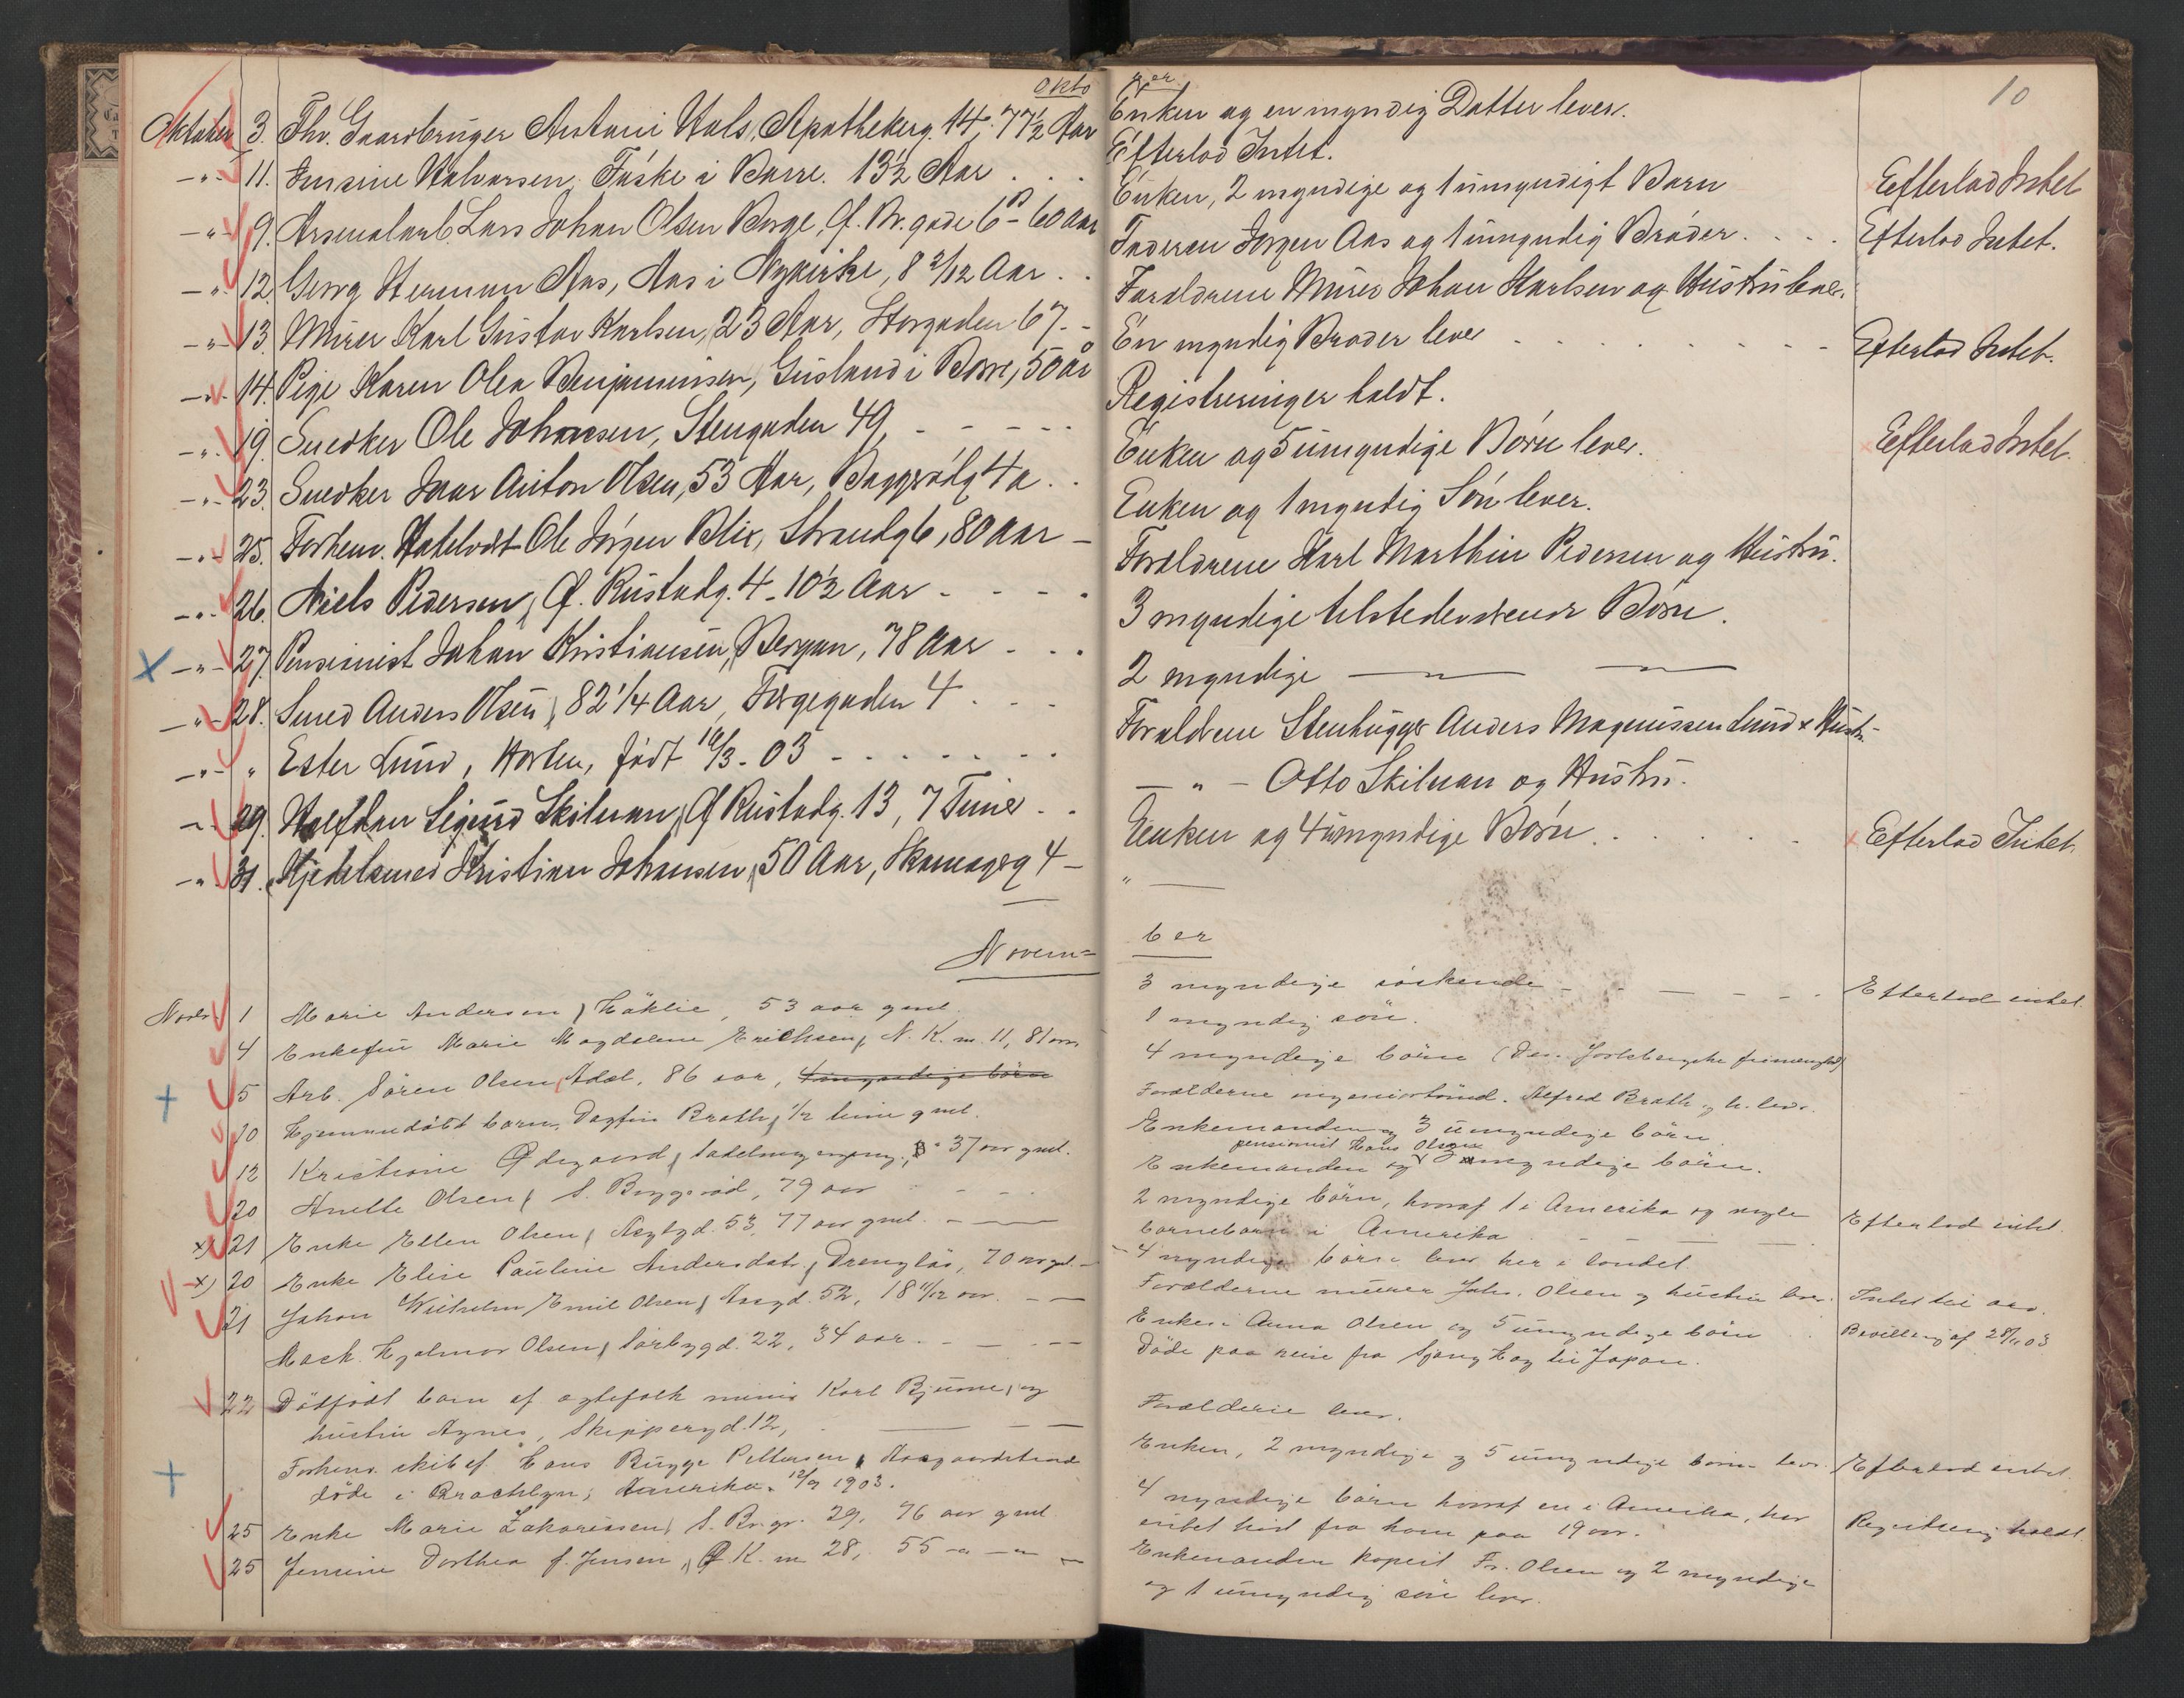 Okto
Oktober 3. Fhv. Gaardbruger Antoni Hals, Apothekerg. 14, 77½ Aar
-"- 11. Jensine Halvorsen, Falske i Borre. 13½ Aar . . .
-"- 9. Arsenalarb. Lars Johan Olsen Borge, Ø. Br. gade 6B - 60 Aar
-"- 12. Georg Herman Aas, Aas i Nykirke, 8 2/12 Aar . .
-"- 13. Murer Karl Gustav Karlsen, 23 Aar, Storgaden 67 - -
-"- 14. Pige Karen Olea Benjaminsen, Gusland i Borre, 50 år
-"- 19. Snedker Ole Johansen, Stengaden 49, - - - - -
-"- 23. Snedker Ivar Anton Olsen, 53 Aar, Baggerødg 4a . .
-"- 25. Forhenv. Ole Jörgen Blix, Strandg 6, 80 Aar -
-"- 26. Niels Pedersen, Ø. Rustadg. 4 - 10½ Aar - - - -
X -"- 27. Pensionist Johan Kristiansen, Bergan, 78 Aar - . .
-"- 28. Smed Anders Olsen, 82 1/4 Aar, Færgegaden 4 . . .
-"- " Ester Lund, Horten, født 10/3 - 03 - - - - - - - -
-"- 29. Halfdan Sigurd Skilman, Ø Rustadg. 13, 7 Timer . .
-"- 31. Kjedelsmed Kristian Johansen, 50 Aar, Skomagerg 4 -
Novem=
Novbr 1 Marie Andersen, Häklie, 53 aar gml.
4 Enkefru Marie Magdalene Erichsen, N. K. m. 11, 81 aar
+ 5 Arb. Sören Olsen, Adal, 86 aar, 4 myndige börn
10 Hjemmedöbt barn, Dagfin Brath, ½ time gml.
12 Kristiane Ødegaard, Sadelmagergang. 37 aar gml.
20 Anette Olsen, S. Baggeröd, 79 aar - - -
x) 21 Enke Ellen Olsen, Nygd. 53, 77 aar gml. - —
x) 20 Enke Elise Pauline Andersdatr., Drengläs, 70 aar gml. -
21 Johan Wilhelm Emil Olsen, 52, 18 11/12 aar. - —
Mask. Hjalmar Olsen, Sörbygd. 22, 34 aar. - — - —
22 Dödfödt barn af ægtefolk Karl Bjune, og
hustru Agnes, Skippergd. 12, — - —
+ Forhenv. skibsf. Hans Bugge Pettersen,
döde i Brooklyn, Amerika. 12/9 1903.
25 Enke Marie Zakariasen, S. Br. gr. 29, 76 aar gml
25 Jensine Dorthea f. Jensen, Ø K. m 28, 55 -"- -"- —
ber
10
Enken og en myndig Datter lever.
Efterlod Intet.
Enken, 2 myndige og 1 umyndigt Barn Efterlod Intet
Faderen Jörgen Aas og 1 umyndig Broder. . . . Efterlod Intet.
Forældrene Murer Johan Karlsen og Hustru lever.
En myndig Broder lever - - - - - - - - Efterlod Intet.
Registreringer holdt.
Enken og 5 umyndige Börn lever. Efterlod Intet.
Enken og 1 myndig Sön lever.
Forældrene Karl Marthin Pedersen og Hustru.
3 myndige tilstedeværende Börn.
2 myndige —"— —"—
Forældrene Stenhugger Anders Magnussen Lund & Hustr-
— " — Otto Skilman og Hustru.
Enken og 4 umyndige Börn . . . . Efterlod Intet.
" —
ber
3 myndige söskende - - - - - - Efterlod intet
1 myndig sön.
4 myndige börn (Den Jarlsbergske frimenighed)
Forælderne Alfred Brath og h. lever.
Enkemanden og 3 umyndige börn.
pensionist Hans Olsen
Enkemanden og myndige börn.
2 myndige börn, hvoraf 1 i Amerika og nogle
barnebarn i Amerika - — — Efterlod intet
4 myndige börn lever her i landet.
Forælderne murer Johs. Olsen og hustru lever. Intet til arv.
Enken Anna Olsen og 5 umyndige börn . Bevilling af 28/11 03
Döde paa reise fra til Japan.
Forælderne lever.
Enken, 2 myndige og 5 umyndige börn lever. Efterlod intet.
4 myndige börn hvoraf en i Amerika, har
intet hört fra ham paa 19 aar. Registrering holdt
Enkemanden Fr. Olsen og 2 myndige
og 1 umyndig sön lever.